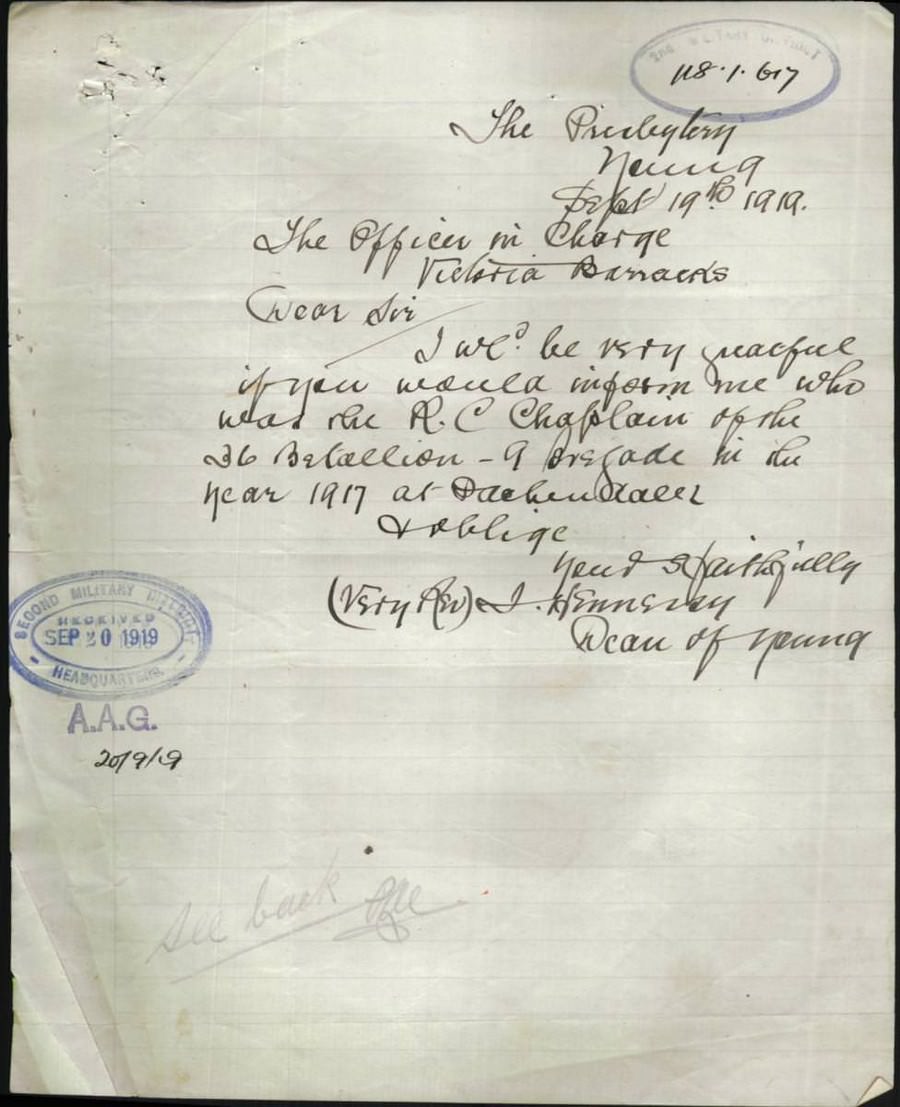 2nd MILITARY DISTRICT
118.1.617
The Presbytery
Young
Sept 19th 1919.
The Officer in Charge
Victoria Barracks
Dear Sir
I wld. be very grateful
if you would inform me who
was the R.C Chaplain of the
36 Batallion - 9 Bregade in the
year 1917 at
& oblige
Yours faithfully
(Very Rev) J. Hennessy
Dean of Young
SECOND MILITARY DISTRICT
RECEIVED
SEP 20 1919
HEADQUARTERS
A.A.G.
20/9/19
See back